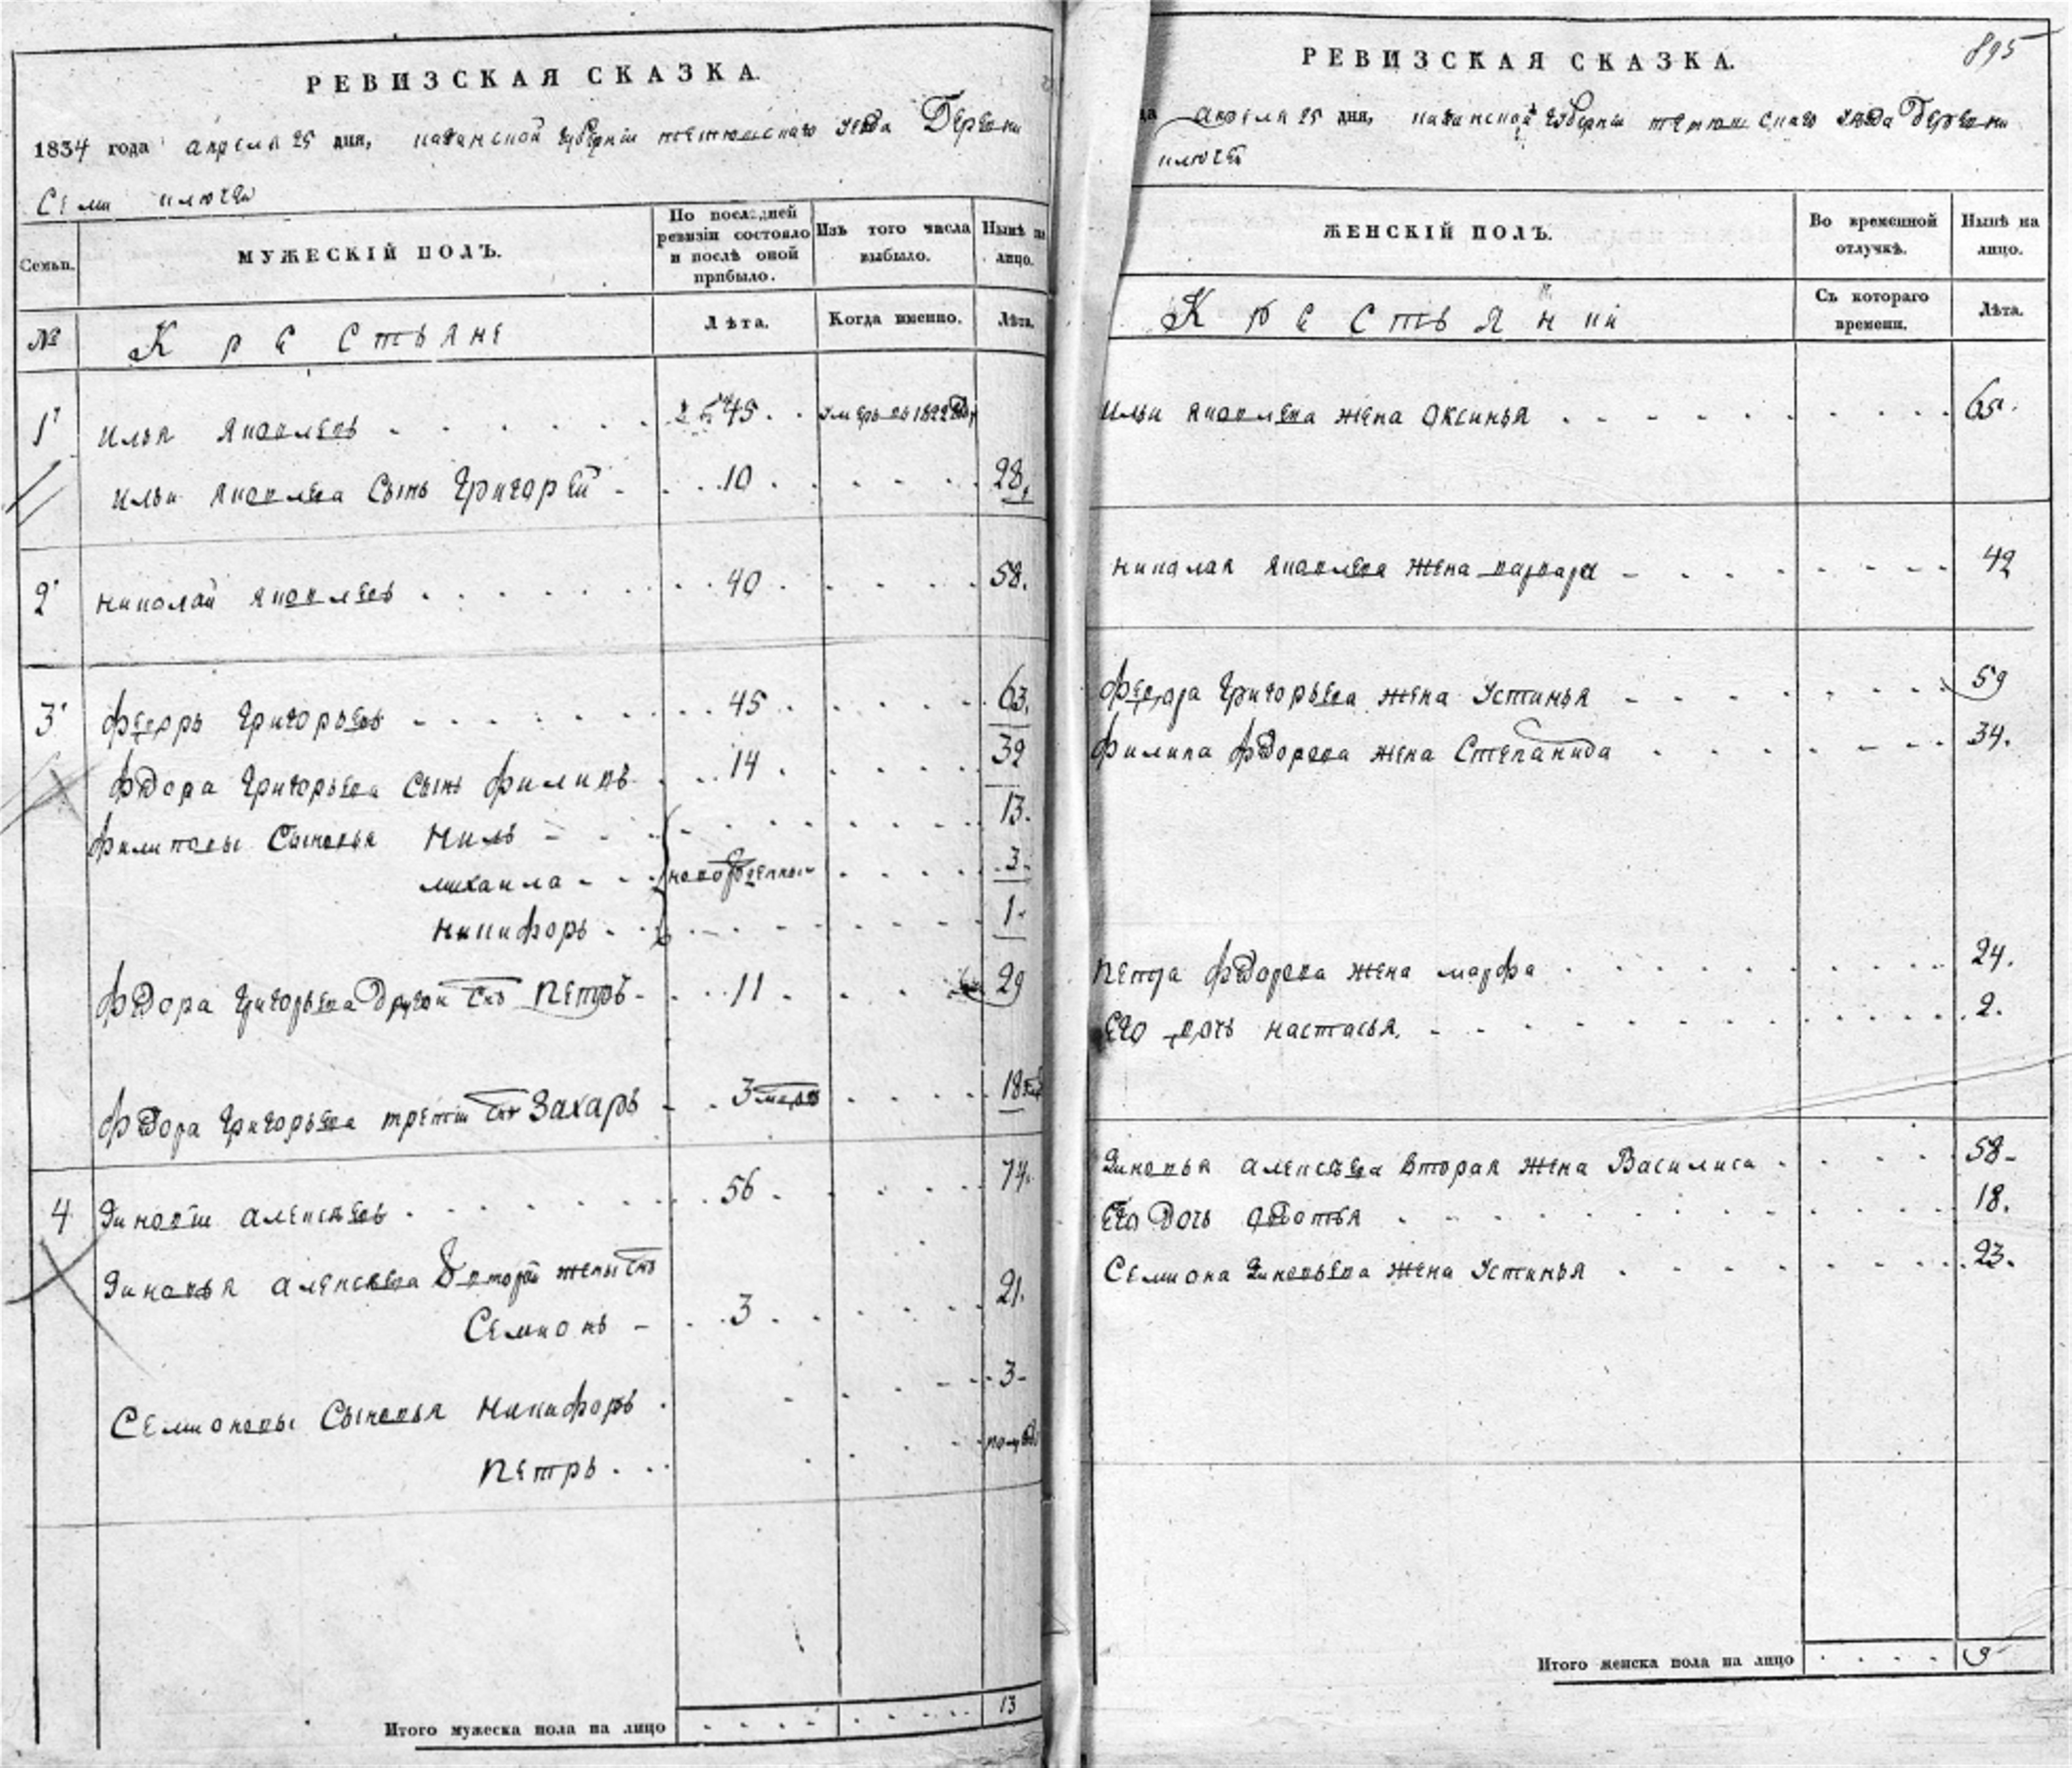 РЕВИЗСКАЯ СКАЗКА.
1834 года апреля 25 дня, казанской губернїи тетюшскаго уезда Деревни
Семи ключей
Семьи.
МУЖЕСКІЙ ПОЛЪ.
По последней ревизіи состояло и послѣ оной прибыло.
Изъ того числа выбыло.
Нынѣ на лицо.
№
Крестьяне
Лѣта.
Когда именно.
Лѣта.
1 илья яковлевъ 45 умеръ въ 1822 году
ильи яковлева Сынъ григорей 10 28
2 николай яковлевъ 40 58
3 федоръ григорьевъ 45 63
федора григорьева сынъ филипъ 14 32
филиповы Сыновья Нилъ 13
михаила новорожденные 3
никифоръ 1
федора григорьева Другой снъ Петръ 11 29
федора григорьева третїи снъ Захаръ 3 18
4 Зиновїи алексѣевъ 56 74
Зиновья алексѣева Второй жены снъ
Семионъ 3 21
Семионовы Сыновья никифоръ 3
Петръ полугоду
Итого мужеска пола на лицо 13
895
РЕВИЗСКАЯ СКАЗКА.
апреля 25 дня, казанской губернїи тетюшскаго уезда Деревни
ключей
ЖЕНСКІЙ ПОЛЪ.
Во временной отлучкѣ.
Нынѣ на лицо.
Крестьянки
Съ котораго времени.
Лѣта.
ильи яковлева жена оксинья 65
николая яковлева жена варвара 42
федора григорьева жена устинья 59
филипа федорова жена Степанида 34
петра федорова жена марфа 24
Его дочь настасья 2
Зиновья алексѣева вторая жена Василиса 58
Его Дочь авдотья 18
Семиона Зиновьева жена устинья 23
Итого женска пола на лицо 9